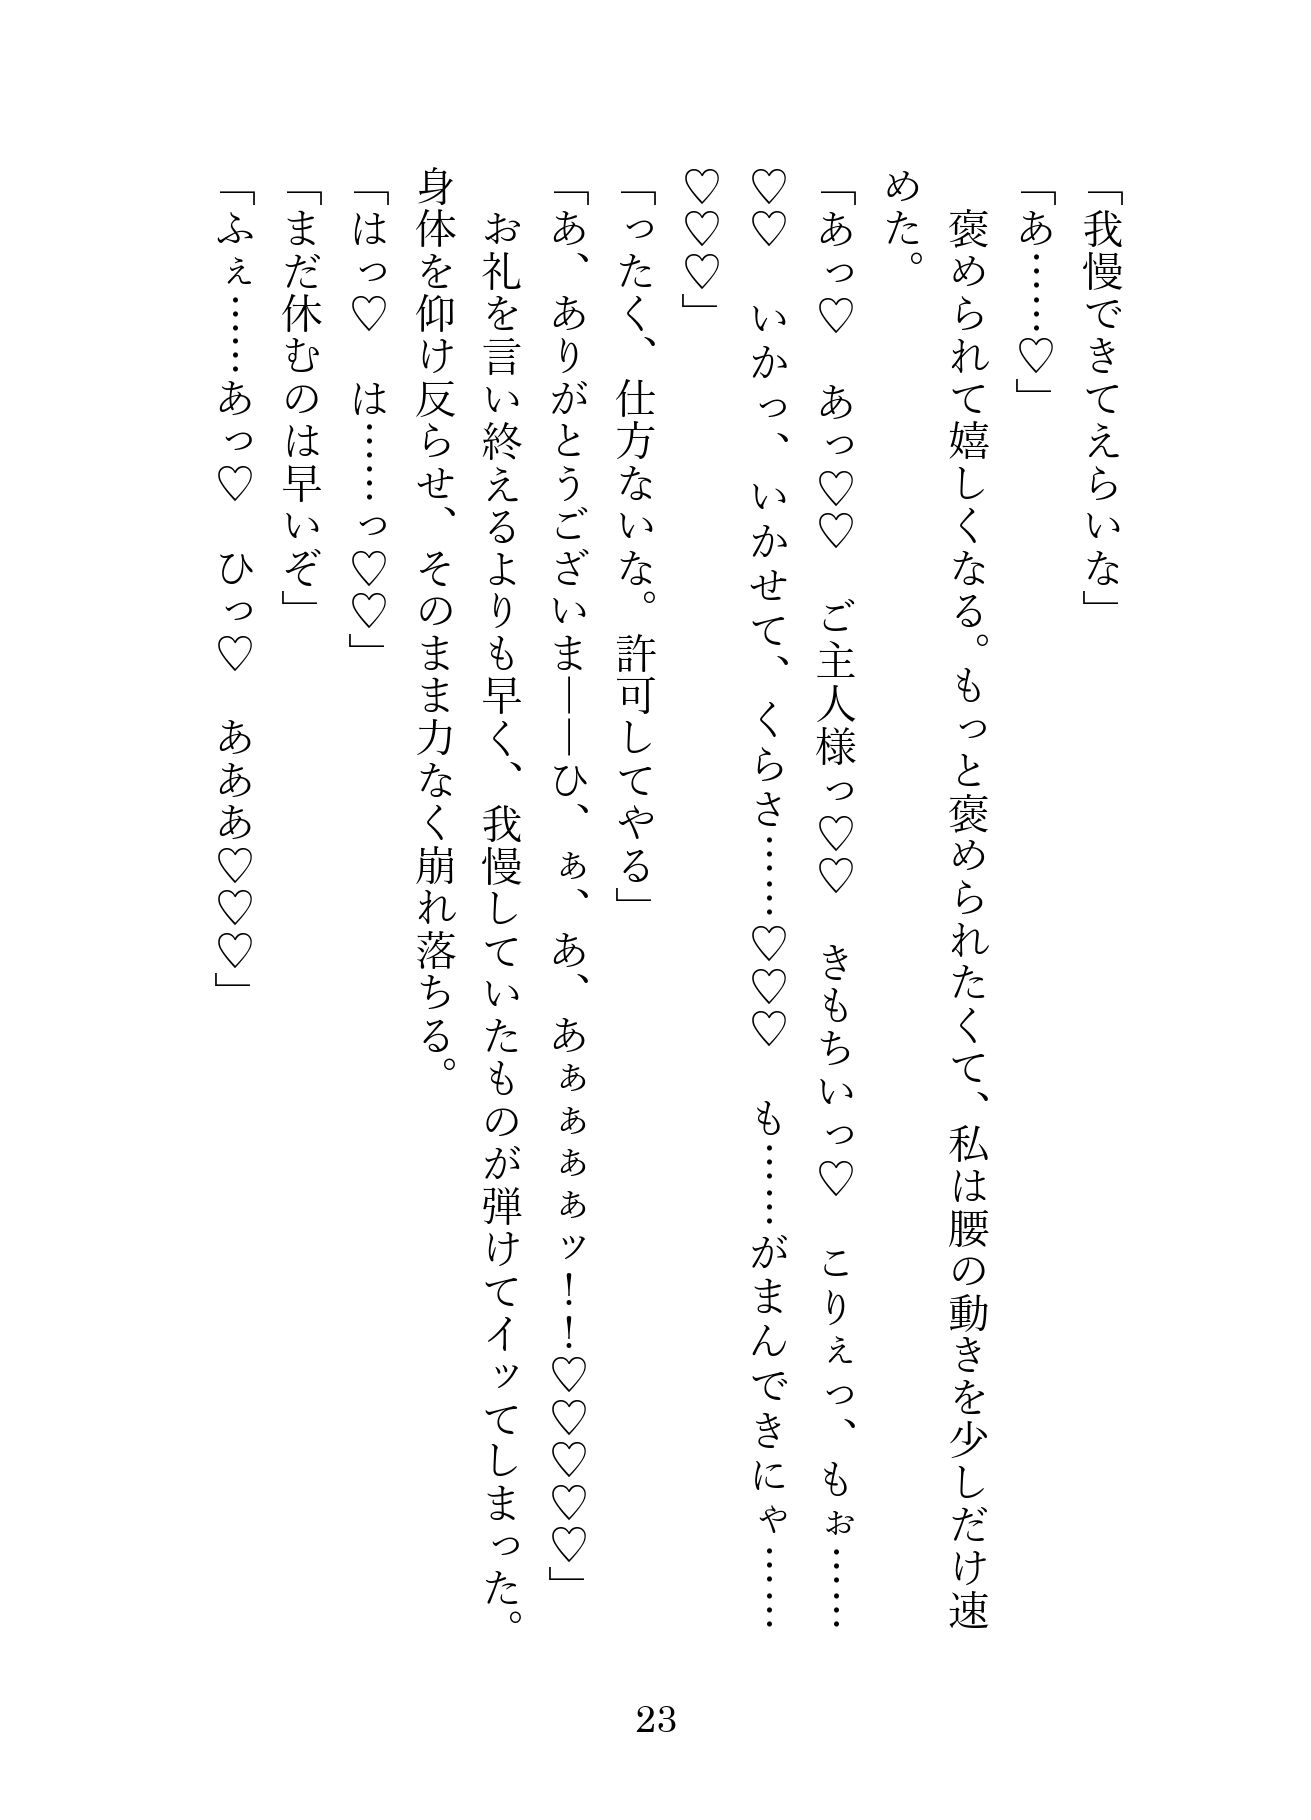 「我慢できてえらいな」
「あ……♡」
　褒められて嬉しくなる。もっと褒められたくて、私は腰の動きを少しだけ速
めた。
「あっ♡　あっ♡♡　ご主人様っ♡♡　きもちいっ♡　こりぇっ、もぉ……
♡♡　いかっ、いかせて、くらさ……♡♡♡　も……がまんできにゃ……
♡♡♡」
「ったく、仕方ないな。許可してやる」
「あ、ありがとうございま――ひ、ぁ、あ、あぁぁぁぁッ！！♡♡♡♡♡」
　お礼を言い終えるよりも早く、我慢していたものが弾けてイッてしまった。
身体を仰け反らせ、そのまま力なく崩れ落ちる。
「はっ♡　は……っ♡♡」
「まだ休むのは早いぞ」
「ふぇ……あっ♡　ひっ♡　あああ♡♡♡」
23